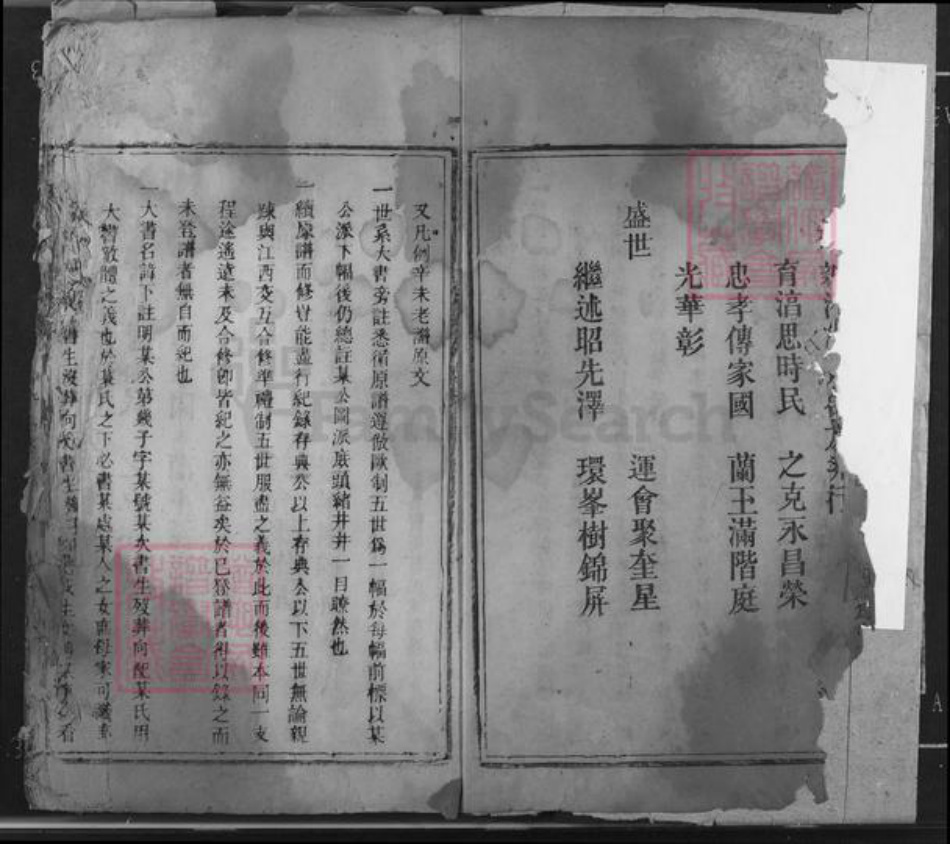 育湻思時民　之克永昌榮
忠孝傳家國　蘭玉滿階庭
光華彰
盛世　運會聚奎星
繼述昭先澤　環峯樹錦屏
又凡例辛未老譜原文
一世系大書旁註悉循原譜遵倣歐制五世爲一幅於每幅前標以某
公派下幅後仍總註某公圖派底頭緒井井一目瞭然也
一續原譜而修豈能盡行紀錄存典公以上存典公以下五世無論親
疎與江西支互合修準禮制五世服盡之義於此而後雖本同一支
程途遙遠未及合修卽皆紀之亦無益矣於已登譜者得以錄之而
未登譜者無自而紀也
一大書名諱下註明某公第幾子字某號某次書生歿葬向配某氏用
大書敵體之義也於某氏之下必書某處某人之女
書生沒葬向
FamilySearch